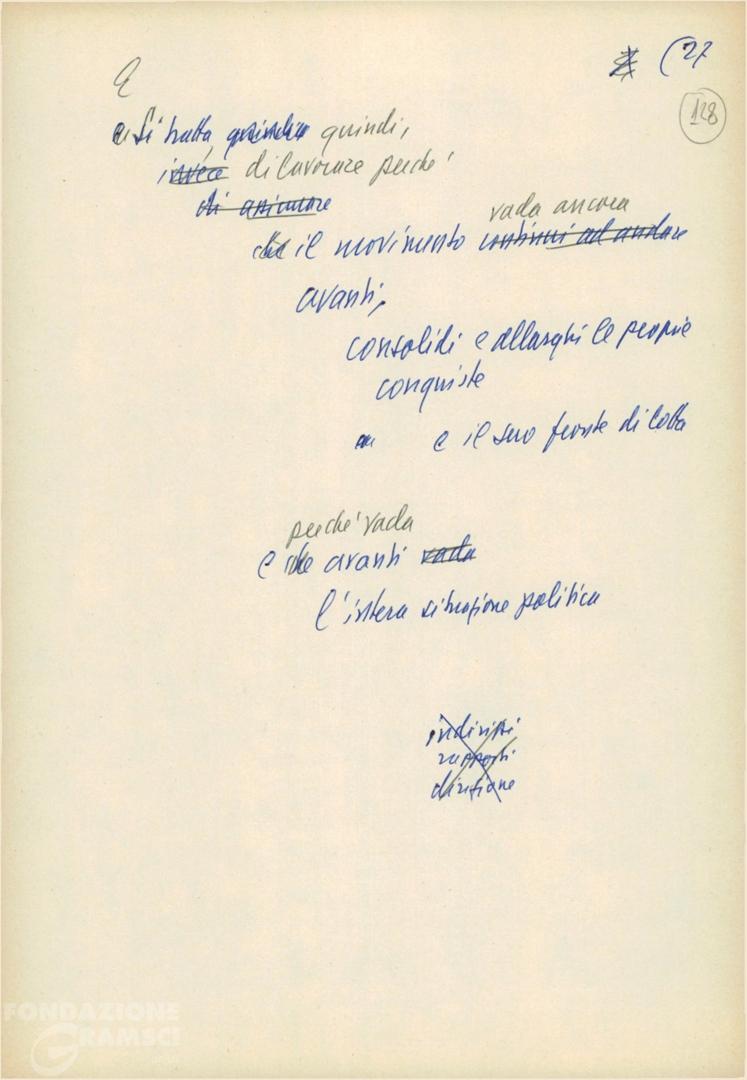 (27
128
e Si tratta, quindi quindi,
invece di lavorare perché
di assicurare
che il movimento vada ancora continui ad andare
avanti,
consolidi e allarghi le proprie
conquiste
e il suo fronte di lotta
perché vada
e che avanti vada
l'intera situazione politica
indirizzi
rapporti
direzione
FONDAZIONE
GRAMSCI